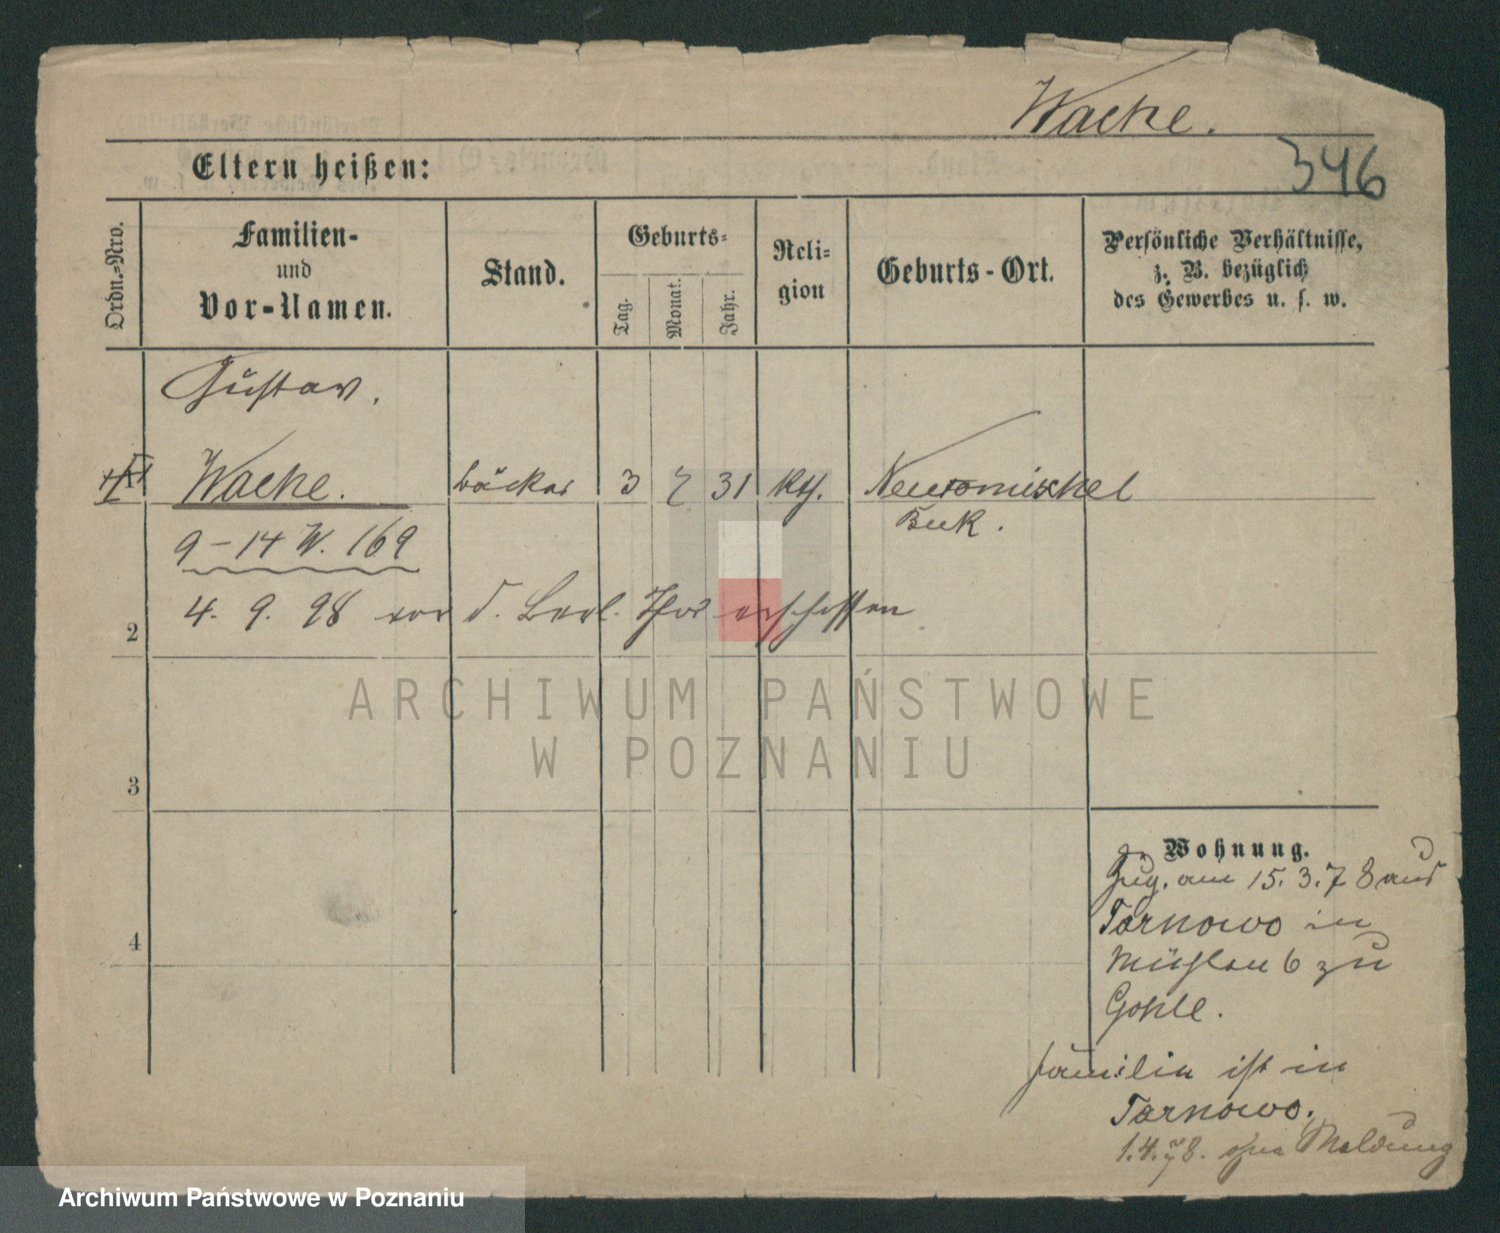 Wache.
346
Eltern heißen:
Ordn.-Nro.
Familien-
und
Vor-Namen.
Stand.
Geburts-
Tag.
Monat.
Jahr.
Reli-
gion
Geburts-Ort.
Persönliche Verhältnisse,
z. B. bezüglich
des Gewerbes u. s. w.
Gustav.
Wache. Bäcker 3 7 31 kth. Neutomischel
Buk.
9-14 W. 169
4. 9. 98 vor d. Berl. Thor erschossen
2
3
4
ARCHIWUM PAŃSTWOWE
W POZNANIU
Wohnung.
Zug. am 15. 3. 78 aus
Tarnowo in
Mühlen 6 zu
Gohle.
Familie ist in
Tarnowo.
1.4.78. ohne Meldung
Archiwum Państwowe w Poznaniu